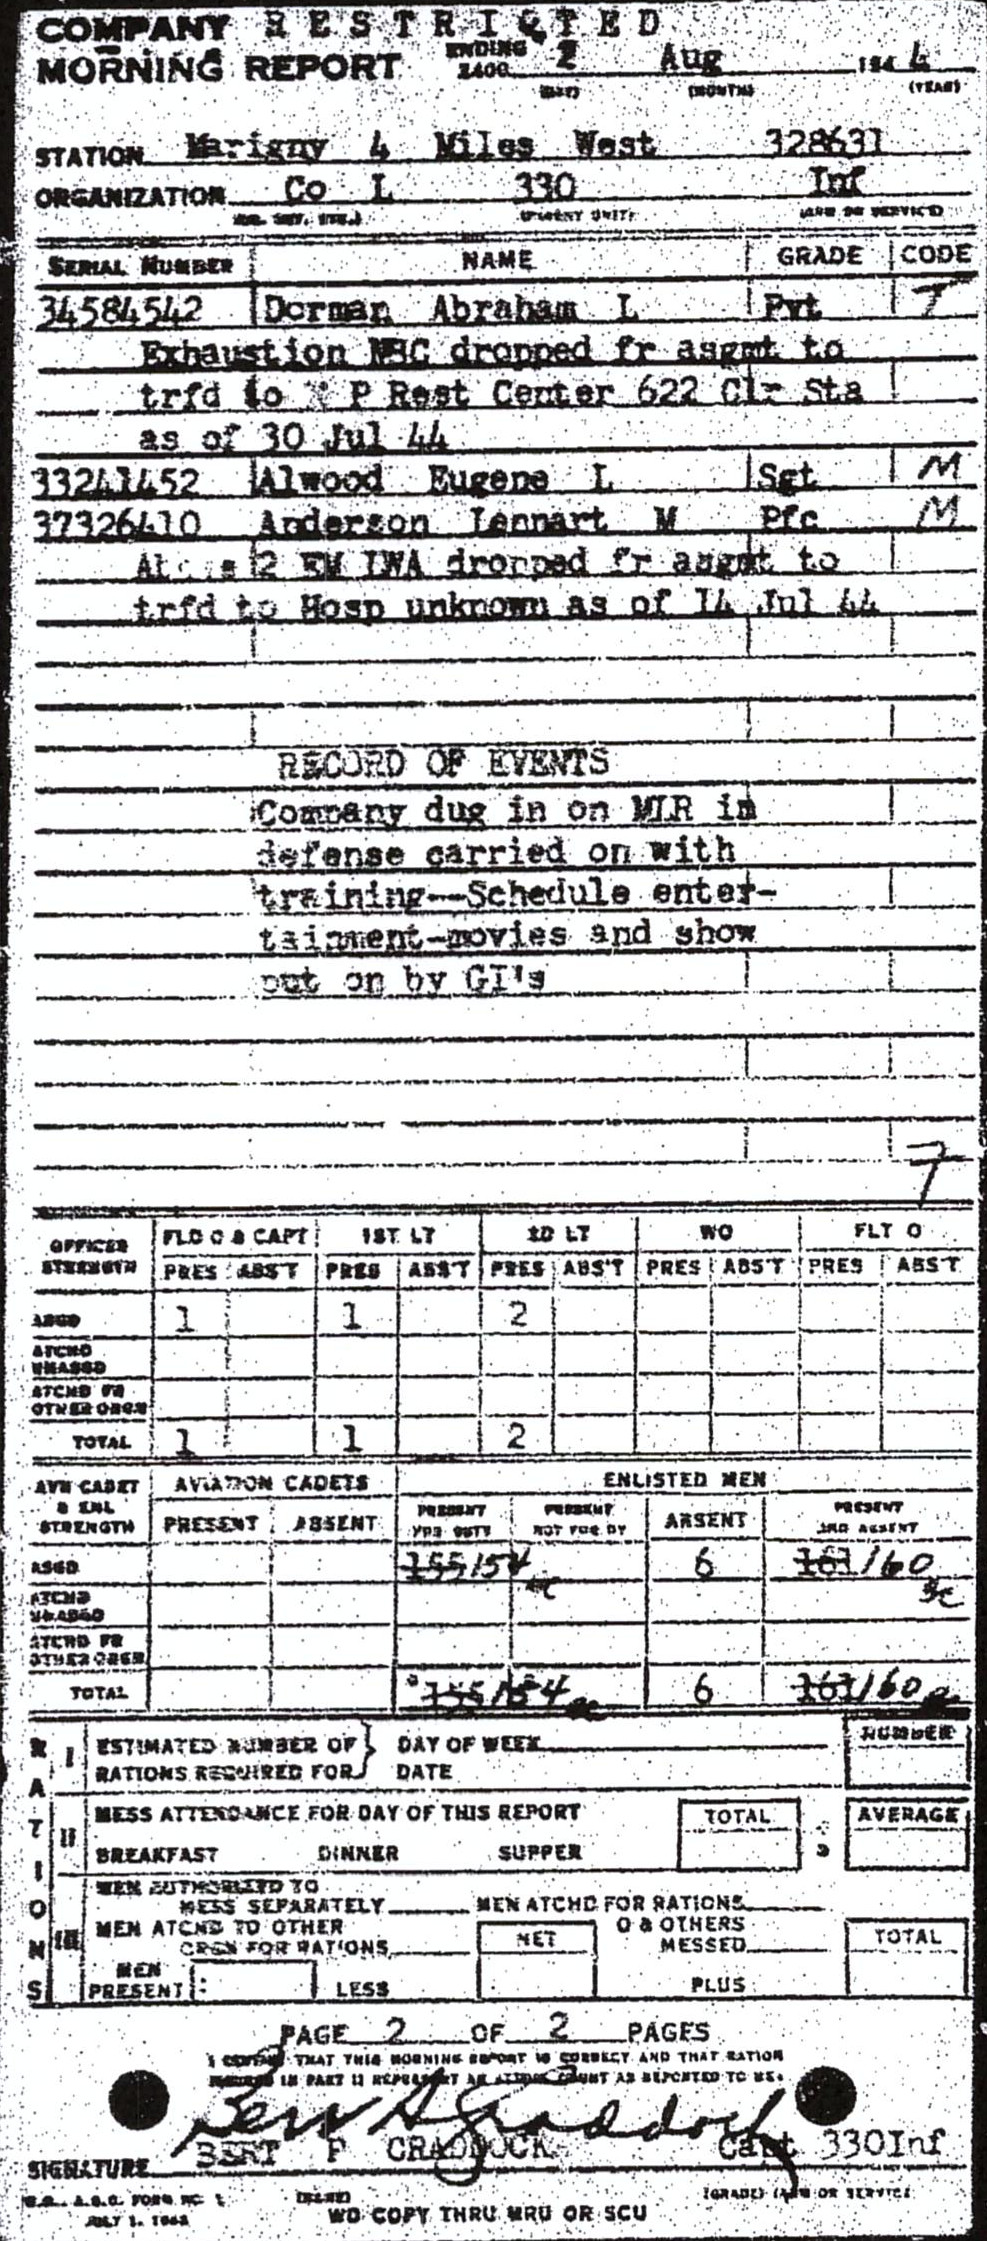 COMPANY RESTRICTED
MORNING REPORT ENDING 2400 2 Aug 1944
(DAY) (MONTH) (YEAR)
STATION Marigny 4 Miles West 328631
ORGANIZATION Co L 330 Inf
(PARENT UNIT) (ARM OR SERVICE)
SERIAL NUMBER NAME GRADE CODE
34584542 Dorman Abraham L Pvt T
Exhaustion NBC dropped fr asgmt to
trfd to P Rest Center 622 Clr Sta
as of 30 Jul 44
33241452 Alwood Eugene L Sgt M
37326410 Anderson Lennart M Pfc M
Above 2 EM LWA dropped fr asgmt to
trfd to Hosp unknown as of 14 Jul 44
RECORD OF EVENTS
Company dug in on MLR in
defense carried on with
training--Schedule enter-
tainment-movies and show
put on by GI's
7
OFFICER STRENGTH FLD O & CAPT 1ST LT 2D LT WO FLT O
PRES ABS'T PRES ABS'T PRES ABS'T PRES ABS'T PRES ABS'T
ASGD 1 1 2
ATCHD UNASGD
ATCHD FR OTHER ORGN
TOTAL 1 1 2
AVN CADET & ENL STRENGTH AVIATION CADETS ENLISTED MEN
PRESENT ABSENT PRESENT FOR DUTY PRESENT NOT FOR DY ABSENT PRESENT AND ABSENT
ASGD 155 154 6 161 160
ATCHD UNASGD
ATCHD FR OTHER ORGN
TOTAL 155 154 6 161 160
RATIONS
I ESTIMATED NUMBER OF RATIONS REQUIRED FOR } DAY OF WEEK DATE NUMBER
II MESS ATTENDANCE FOR DAY OF THIS REPORT TOTAL ÷ 3 AVERAGE
BREAKFAST DINNER SUPPER
III MEN AUTHORIZED TO
MESS SEPARATELY MEN ATCHD FOR RATIONS
MEN ATCHD TO OTHER ORGN FOR RATIONS NET O & OTHERS MESSED TOTAL
MEN PRESENT LESS PLUS
PAGE 2 OF 2 PAGES
I CERTIFY THAT THIS MORNING REPORT IS CORRECT AND THAT RATION
FIGURES IN PART II REPRESENT AN ACTUAL COUNT AS REPORTED TO ME.
BERT F CRADDOCK Capt 330Inf
SIGNATURE
(NAME) (GRADE) (ARM OR SERVICE)
W.D., A.G.O. FORM NO. 1
JULY 1, 1943
WD COPY THRU MRU OR SCU